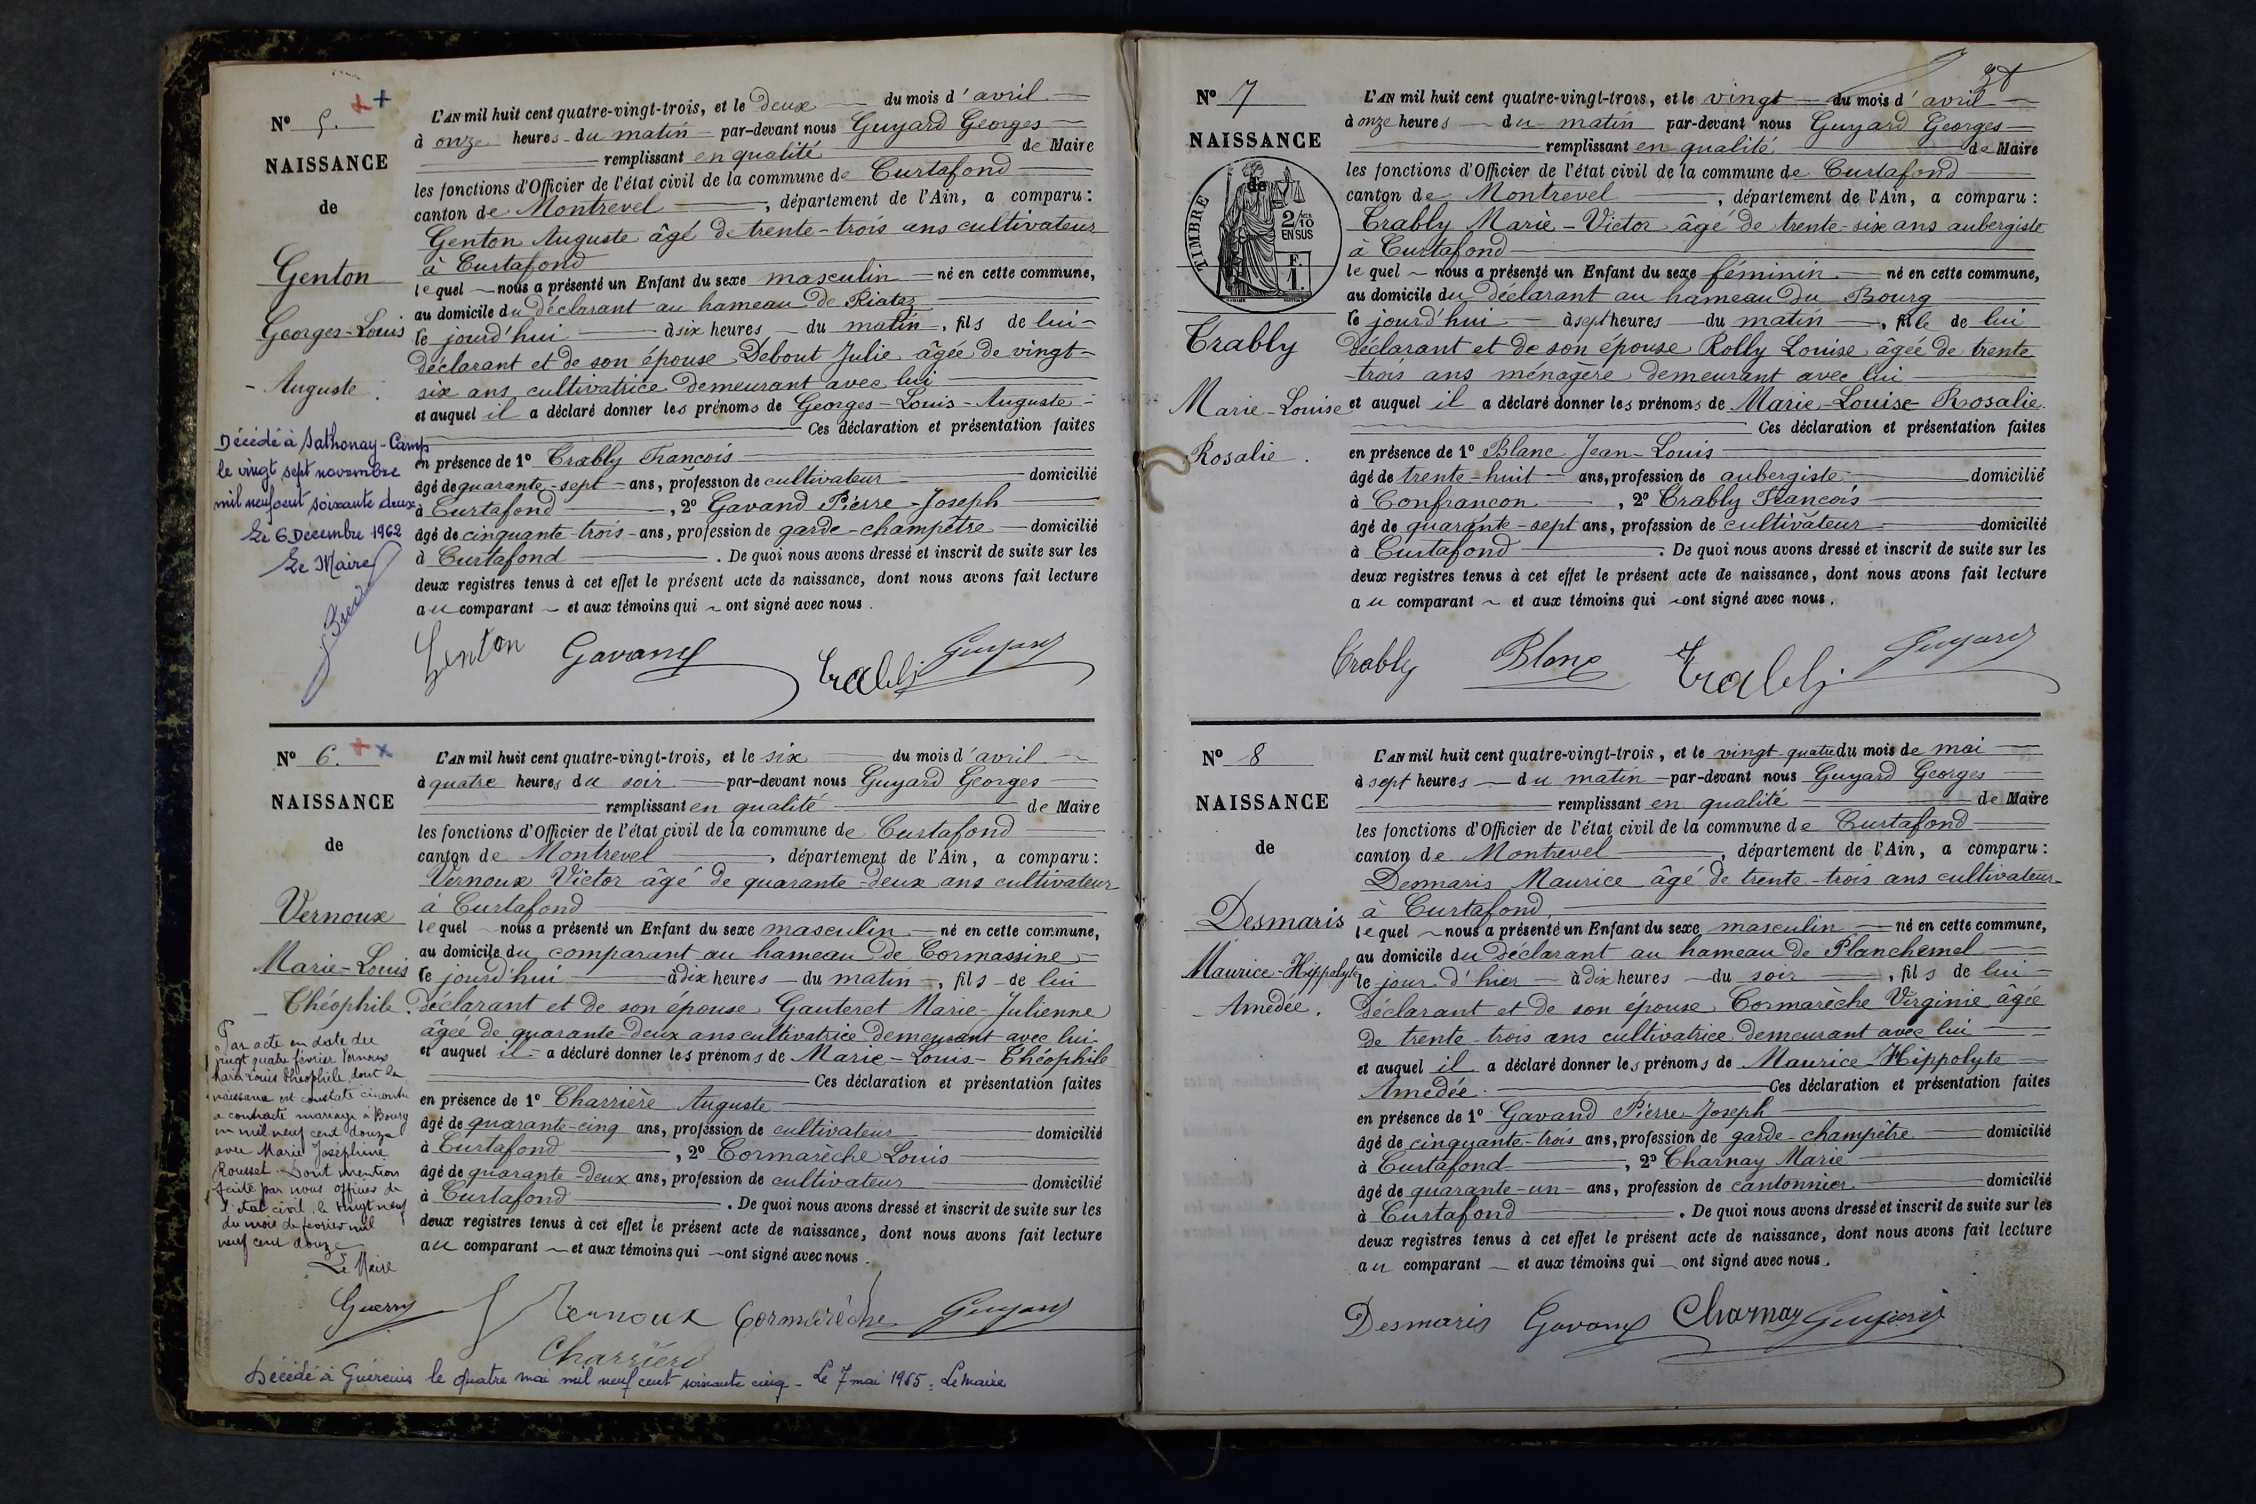 Nº 5.
NAISSANCE
de
Genton
Georges-Louis
- Auguste.
Décédé à Sathonay-Camp
le vingt sept novembre
mil neuf cent soixante deux
Le 6 Décembre 1962
Le Maire
L'AN mil huit cent quatre-vingt-trois, et le deux du mois d'avril
à onze heures du matin par-devant nous Guyard Georges
remplissant en qualité de Maire
les fonctions d'Officier de l'état civil de la commune de Curtafond
canton de Montrevel, département de l'Ain, a comparu :
Genton Auguste âgé de trente-trois ans cultivateur
à Curtafond
lequel nous a présenté un Enfant du sexe masculin né en cette commune,
au domicile du déclarant au hameau de Riatez
le jourd'hui à six heures du matin, fils de lui
déclarant et de son épouse Debout Julie âgée de vingt-
six ans cultivatrice demeurant avec lui
et auquel il a déclaré donner les prénoms de Georges-Louis-Auguste
Ces déclaration et présentation faites
en présence de 1º Crably François
âgé de quarante-sept ans, profession de cultivateur domicilié
à Curtafond, 2º Gavand Pierre-Joseph
âgé de cinquante-trois ans, profession de garde-champêtre domicilié
à Curtafond. De quoi nous avons dressé et inscrit de suite sur les
deux registres tenus à cet effet le présent acte de naissance, dont nous avons fait lecture
au comparant et aux témoins qui ont signé avec nous.
Genton Gavand Crably Guyard
Nº 6.
NAISSANCE
de
Vernoux
Marie-Louis
- Théophile.
Par acte en date du
vingt quatre février Vernoux
Marie Louis Théophile dont la
naissance est constatée ci-contre
a contracté mariage à Bourg
en mil neuf cent douze
avec Marie Joséphine
Rousset. Dont mention
faite par nous officier de
l'état civil, le vingt neuf
du mois de février mil
neuf cent douze
Le Maire
Guerry
L'AN mil huit cent quatre-vingt-trois, et le six du mois d'avril
à quatre heures du soir par-devant nous Guyard Georges
remplissant en qualité de Maire
les fonctions d'Officier de l'état civil de la commune de Curtafond
canton de Montrevel, département de l'Ain, a comparu :
Vernoux Victor âgé de quarante-deux ans cultivateur
à Curtafond
lequel nous a présenté un Enfant du sexe masculin né en cette commune,
au domicile du comparant au hameau de Cormassine
le jourd'hui à dix heures du matin, fils de lui
déclarant et de son épouse Gauteret Marie-Julienne
âgée de quarante-deux ans cultivatrice demeurant avec lui
et auquel il a déclaré donner les prénoms de Marie-Louis-Théophile
Ces déclaration et présentation faites
en présence de 1º Charrière Auguste
âgé de quarante-cinq ans, profession de cultivateur domicilié
à Curtafond, 2º Cormarèche Louis
âgé de quarante-deux ans, profession de cultivateur domicilié
à Curtafond. De quoi nous avons dressé et inscrit de suite sur les
deux registres tenus à cet effet le présent acte de naissance, dont nous avons fait lecture
au comparant et aux témoins qui ont signé avec nous.
Vernoux Cormarèche Guyard
Charrière
Décédé à Guéreins le quatre mai mil neuf cent soixante cinq - Le 7 mai 1965 : Le Maire
Nº 7
NAISSANCE
de
TIMBRE
2/10
EN SUS
F.
1.
Crably
Marie-Louise
Rosalie.
L'AN mil huit cent quatre-vingt-trois, et le vingt du mois d'avril
à onze heures du matin par-devant nous Guyard Georges
remplissant en qualité de Maire
les fonctions d'Officier de l'état civil de la commune de Curtafond
canton de Montrevel, département de l'Ain, a comparu :
Crably Marie-Victor âgé de trente-six ans aubergiste
à Curtafond
lequel nous a présenté un Enfant du sexe féminin né en cette commune,
au domicile du déclarant au hameau du Bourg
le jourd'hui à sept heures du matin, fille de lui
déclarant et de son épouse Rolly Louise âgée de trente
-trois ans ménagère demeurant avec lui
et auquel il a déclaré donner les prénoms de Marie-Louise-Rosalie.
Ces déclaration et présentation faites
en présence de 1º Blanc Jean-Louis
âgé de trente-huit ans, profession de aubergiste domicilié
à Confrancon, 2º Crably François
âgé de quarante-sept ans, profession de cultivateur domicilié
à Curtafond. De quoi nous avons dressé et inscrit de suite sur les
deux registres tenus à cet effet le présent acte de naissance, dont nous avons fait lecture
au comparant et aux témoins qui ont signé avec nous.
Crably Blanc Crably Guyard
Nº 8
NAISSANCE
de
Desmaris
Maurice-Hippolyte
- Amedée.
L'AN mil huit cent quatre-vingt-trois, et le vingt-quatre du mois de mai
à sept heures du matin par-devant nous Guyard Georges
remplissant en qualité de Maire
les fonctions d'Officier de l'état civil de la commune de Curtafond
canton de Montrevel, département de l'Ain, a comparu :
Desmaris Maurice âgé de trente-trois ans cultivateur
à Curtafond,
lequel nous a présenté un Enfant du sexe masculin né en cette commune,
au domicile du déclarant au hameau de Planchemel
le jour d'hier à dix heures du soir, fils de lui
déclarant et de son épouse Cormarèche Virginie âgée
de trente-trois ans cultivatrice demeurant avec lui
et auquel il a déclaré donner les prénoms de Maurice-Hippolyte
Amedée. Ces déclaration et présentation faites
en présence de 1º Gavand Pierre-Joseph
âgé de cinquante-trois ans, profession de garde-champêtre domicilié
à Curtafond, 2º Charnay Marie
âgé de quarante-un ans, profession de cantonnier domicilié
à Curtafond. De quoi nous avons dressé et inscrit de suite sur les
deux registres tenus à cet effet le présent acte de naissance, dont nous avons fait lecture
au comparant et aux témoins qui ont signé avec nous.
Desmaris Gavand Charnay Guyard